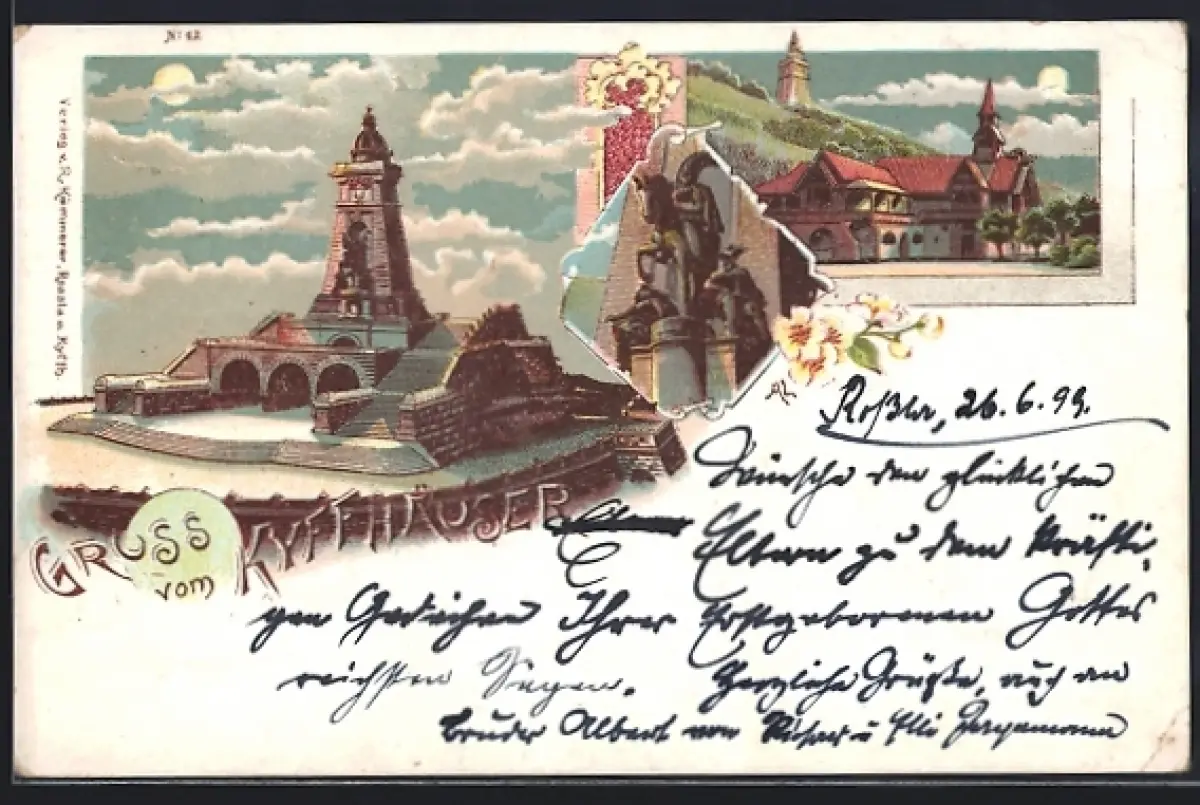 No 42
Verlag v. R. Kämmerer, Rossla a. Kyffh.
GRUSS
vom
KYFFHÄUSER
AK
Roßla, 26.6.99.
Wünsche den glücklichen
Eltern zu dem kräfti-
gen Gedeihen Ihres Erstgeborenen Gottes
reichsten Segen. Herzliche Grüße, auch an
Bruder Albert von Richard u Elli